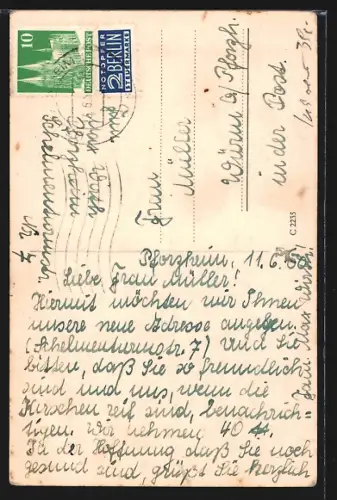 10
NOTOPFER
2 BERLIN
STEUERMARKE
Frau
Müller
Würm b/ Pforzh.
in der Post.
Max
Pforzheim
Schelmenturmstr.
Nr. 7
C 2235
Pforzheim, 11.6.50
Liebe Frau Müller!
Hiermit möchten wir Ihnen
unsere neue Adresse angeben.
(Schelmenturmstr. 7) und Sie
bitten, daß Sie so freundlich
sind und uns, wenn die
Kirschen reif sind, benachrich-
tigen. Wir nehmen 40 ℔.
In der Hoffnung daß Sie noch
gesund sind, grüßt Sie herzlich
Fam. Max